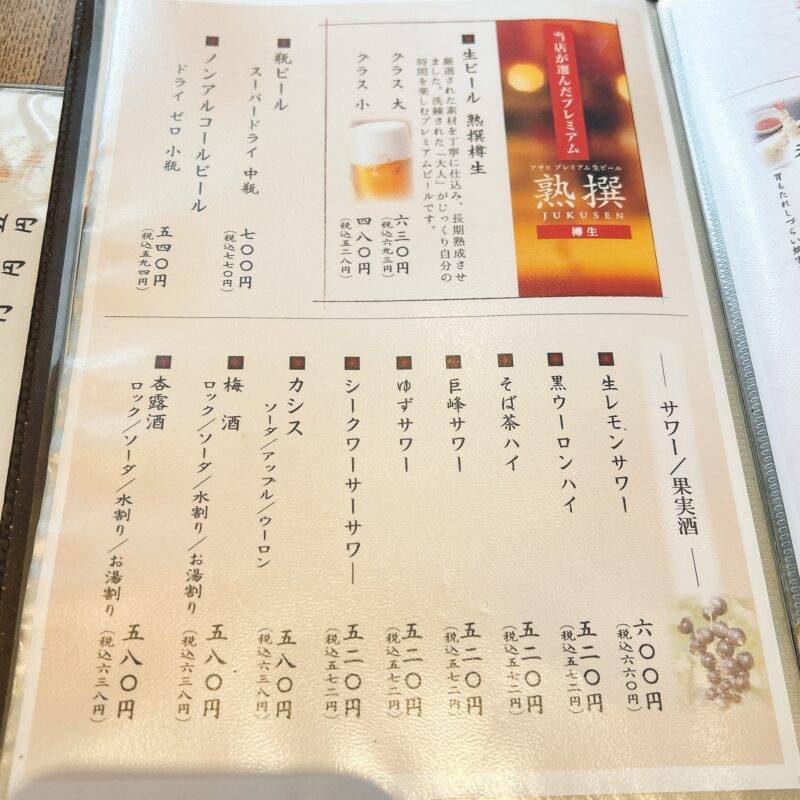 当店が選んだプレミアム
アサヒ プレミアム生ビール
熟撰
JUKUSEN
樽生
生ビール 熟撰樽生
厳選された素材を丁寧に仕込み、長期熟成させ
ました。洗練された「大人」がじっくり自分の
時間を楽しむプレミアムビールです。
グラス 大 六三〇円
(税込六九三円)
グラス 小 四八〇円
(税込五二八円)
瓶ビール
スーパードライ 中瓶 七〇〇円
(税込七七〇円)
ノンアルコールビール
ドライ ゼロ 小瓶 五四〇円
(税込五九四円)
サワー/果実酒
生レモンサワー 六〇〇円
(税込六六〇円)
黒ウーロンハイ 五二〇円
(税込五七二円)
そば茶ハイ 五二〇円
(税込五七二円)
巨峰サワー 五二〇円
(税込五七二円)
ゆずサワー 五二〇円
(税込五七二円)
シークワーサーサワー 五二〇円
(税込五七二円)
カシス
ソーダ/アップル/ウーロン 五八〇円
(税込六三八円)
梅酒
ロック/ソーダ/水割り/お湯割り 五八〇円
(税込六三八円)
杏露酒
ロック/ソーダ/水割り/お湯割り 五八〇円
(税込六三八円)
円
円
円